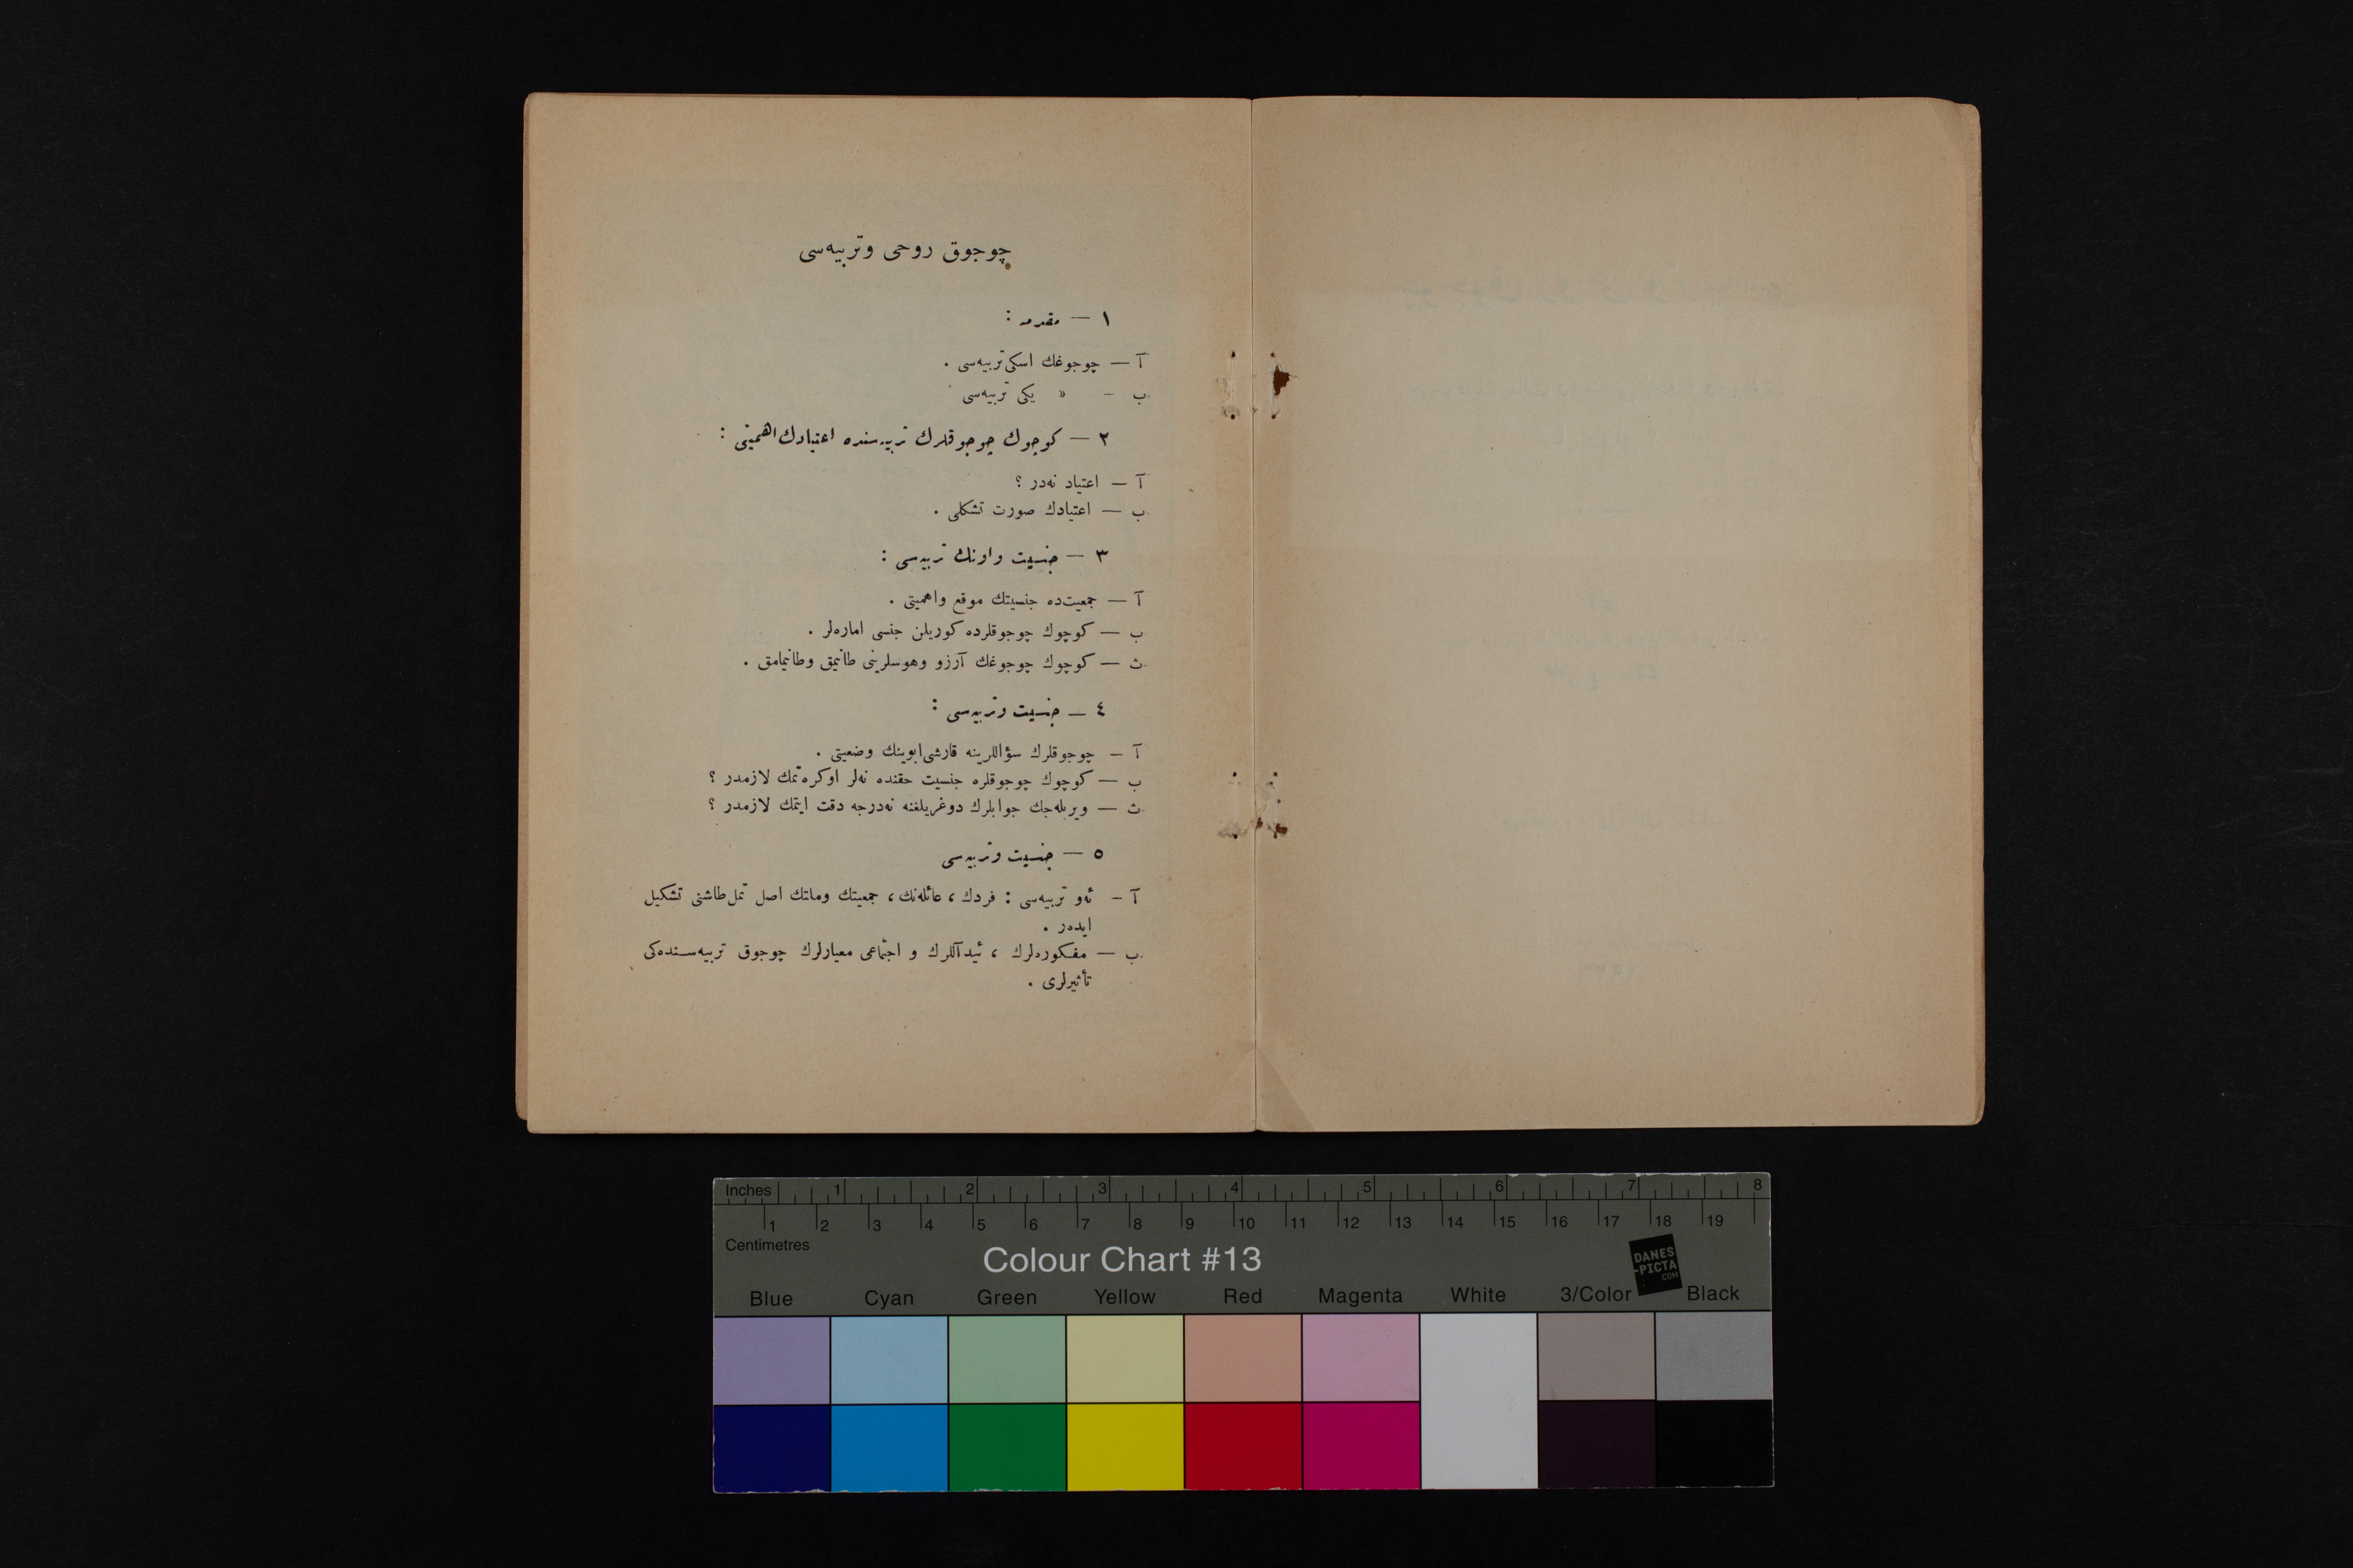 چوجوق روحی وتربیه‌سی
١ — مقدمه :
آ — چوجوغك اسكی تربیه‌سی .
ب - « یكی تربیه‌سی
٢ — كوچوك چوجوقلرك تربیه‌سنده اعتیادك اهمیتی :
آ — اعتیاد نه‌در ؟
ب — اعتیادك صورت تشكلی .
٣ — جنسیت واونك تربیه‌سی :
آ — جمعیت‌ده جنسیتك موقع واهمیتی .
ب — كوچوك چوجوقلرده كوریلن جنسی اماره‌لر .
ث — كوچوك چوجوغك آرزو وهوسلرینی طانیمق وطانیمامق .
٤ — جنسیت وتربیه‌سی :
آ - چوجوقلرك سؤاللرینه قارشی ابوینك وضعیتی .
ب — كوچوك چوجوقلره جنسیت حقنده نه‌لر اوكره‌تمك لازمدر ؟
ث — ویریله‌جك جوابلرك دوغریلغنه نه‌درجه دقت ایتمك لازمدر ؟
٥ — جنسیت وتربیه‌سی
آ - ئه‌و تربیه‌سی : فردك ، عائله‌نك ، جمعیتك وملتك اصل تمل طاشنی تشكیل
ایده‌ر .
ب — مفكوره‌لرك ، ئیدآللرك و اجتماعی معیارلرك چوجوق تربیه‌سنده‌كی
تأثیرلری .
Inches 1 2 3 4 5 6 7 8
1 2 3 4 5 6 7 8 9 10 11 12 13 14 15 16 17 18 19
Centimetres
Colour Chart #13
DANES
-PICTA
.COM
Blue Cyan Green Yellow Red Magenta White 3/Color Black